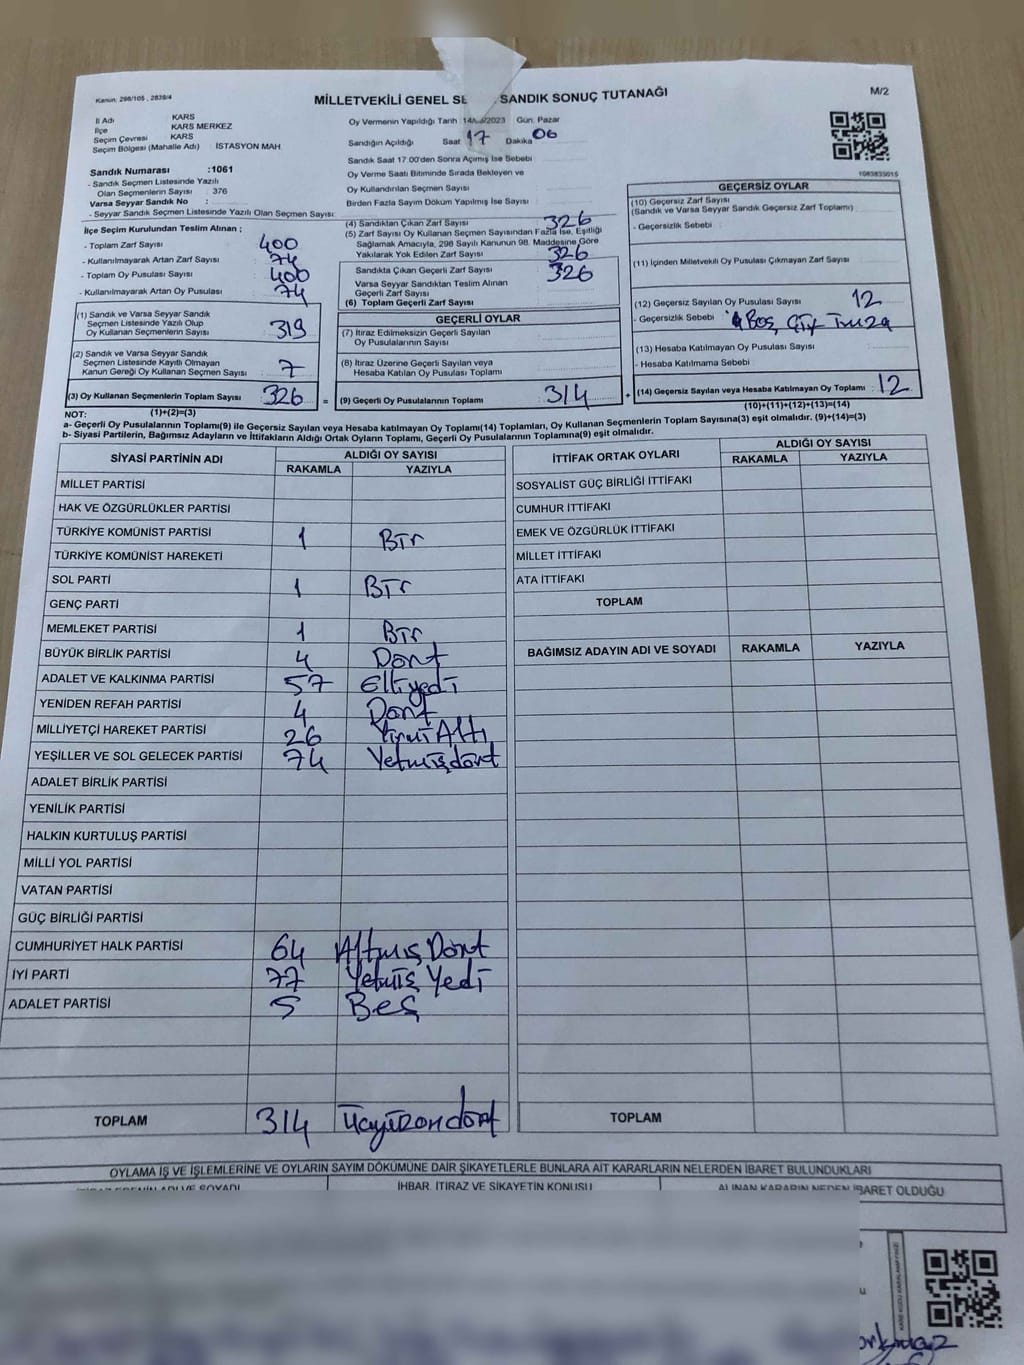 Kanun: 298/105 , 2839/4
MİLLETVEKİLİ GENEL SE SANDIK SONUÇ TUTANAĞI
M/2
İl Adı KARS
İlçe KARS MERKEZ
Seçim Çevresi KARS
Seçim Bölgesi (Mahalle Adı) İSTASYON MAH.
Sandık Numarası :1061
- Sandık Seçmen Listesinde Yazılı
Olan Seçmenlerin Sayısı : 376
Varsa Seyyar Sandık No :
- Seyyar Sandık Seçmen Listesinde Yazılı Olan Seçmen Sayısı:
İlçe Seçim Kurulundan Teslim Alınan ;
- Toplam Zarf Sayısı : 400
- Kullanılmayarak Artan Zarf Sayısı : 74
- Toplam Oy Pusulası Sayısı : 400
- Kullanılmayarak Artan Oy Pusulası : 74
(1) Sandık ve Varsa Seyyar Sandık
Seçmen Listesinde Yazılı Olup
Oy Kullanan Seçmenlerin Sayısı : 319
(2) Sandık ve Varsa Seyyar Sandık
Seçmen Listesinde Kayıtlı Olmayan
Kanun Gereği Oy Kullanan Seçmen Sayısı : 7
(3) Oy Kullanan Seçmenlerin Toplam Sayısı : 326
(1)+(2)=(3)
Oy Vermenin Yapıldığı Tarih : /2023 Gün: Pazar
Sandığın Açıldığı Saat 17 Dakika 06
Sandık Saat 17:00'den Sonra Açımış İse Sebebi
Oy Verme Saati Bitiminde Sırada Bekleyen ve
Oy Kullandırılan Seçmen Sayısı :
Birden Fazla Sayım Döküm Yapılmış İse Sayısı :
(4) Sandıktan Çıkan Zarf Sayısı : 326
(5) Zarf Sayısı Oy Kullanan Seçmen Sayısından Fazla İse, Eşitliği
Sağlamak Amacıyla, 298 Sayılı Kanunun 98. Maddesine Göre
Yakılarak Yok Edilen Zarf Sayısı : 326
Sandıkta Çıkan Geçerli Zarf Sayısı : 326
Varsa Seyyar Sandıktan Teslim Alınan
Geçerli Zarf Sayısı :
(6) Toplam Geçerli Zarf Sayısı :
GEÇERLİ OYLAR
(7) İtiraz Edilmeksizin Geçerli Sayılan
Oy Pusulalarının Sayısı :
(8) İtiraz Üzerine Geçerli Sayılan veya
Hesaba Katılan Oy Pusulası Toplamı :
= (9) Geçerli Oy Pusulalarının Toplamı : 314
1083835015
GEÇERSİZ OYLAR
(10) Geçersiz Zarf Sayısı
(Sandık ve Varsa Seyyar Sandık Geçersiz Zarf Toplamı) :
- Geçersizlik Sebebi :
(11) İçinden Milletvekili Oy Pusulası Çıkmayan Zarf Sayısı :
(12) Geçersiz Sayılan Oy Pusulası Sayısı : 12
- Geçersizlik Sebebi : Boş, Çift İmza
(13) Hesaba Katılmayan Oy Pusulası Sayısı :
- Hesaba Katılmama Sebebi :
+ (14) Geçersiz Sayılan veya Hesaba Katılmayan Oy Toplamı : 12
(10)+(11)+(12)+(13)=(14)
NOT:
a- Geçerli Oy Pusulalarının Toplamı(9) ile Geçersiz Sayılan veya Hesaba katılmayan Oy Toplamı(14) Toplamları, Oy Kullanan Seçmenlerin Toplam Sayısına(3) eşit olmalıdır. (9)+(14)=(3)
b- Siyasi Partilerin, Bağımsız Adayların ve İttifakların Aldığı Ortak Oyların Toplamı, Geçerli Oy Pusulalarının Toplamına(9) eşit olmalıdır.
SİYASİ PARTİNİN ADI ALDIĞI OY SAYISI
RAKAMLA YAZIYLA
MİLLET PARTİSİ
HAK VE ÖZGÜRLÜKLER PARTİSİ
TÜRKİYE KOMÜNİST PARTİSİ 1 Bir
TÜRKİYE KOMÜNİST HAREKETİ
SOL PARTİ 1 Bir
GENÇ PARTİ
MEMLEKET PARTİSİ 1 Bir
BÜYÜK BİRLİK PARTİSİ 4 Dört
ADALET VE KALKINMA PARTİSİ 57 Elliyedi
YENİDEN REFAH PARTİSİ 4 Dört
MİLLİYETÇİ HAREKET PARTİSİ 26 Yirmi Altı
YEŞİLLER VE SOL GELECEK PARTİSİ 74 Yetmişdört
ADALET BİRLİK PARTİSİ
YENİLİK PARTİSİ
HALKIN KURTULUŞ PARTİSİ
MİLLİ YOL PARTİSİ
VATAN PARTİSİ
GÜÇ BİRLİĞİ PARTİSİ
CUMHURİYET HALK PARTİSİ 64 Altmış Dört
İYİ PARTİ 77 Yetmiş Yedi
ADALET PARTİSİ 5 Beş
TOPLAM 314 Üçyüzondört
İTTİFAK ORTAK OYLARI ALDIĞI OY SAYISI
RAKAMLA YAZIYLA
SOSYALİST GÜÇ BİRLİĞİ İTTİFAKI
CUMHUR İTTİFAKI
EMEK VE ÖZGÜRLÜK İTTİFAKI
MİLLET İTTİFAKI
ATA İTTİFAKI
TOPLAM
BAĞIMSIZ ADAYIN ADI VE SOYADI RAKAMLA YAZIYLA
TOPLAM
OYLAMA İŞ VE İŞLEMLERİNE VE OYLARIN SAYIM DÖKÜMÜNE DAİR ŞİKAYETLERLE BUNLARA AİT KARARLARIN NELERDEN İBARET BULUNDUKLARI
İHBAR, İTİRAZ VE ŞİKAYETİN KONUSU ALINAN KARARIN NEDEN İBARET OLDUĞU